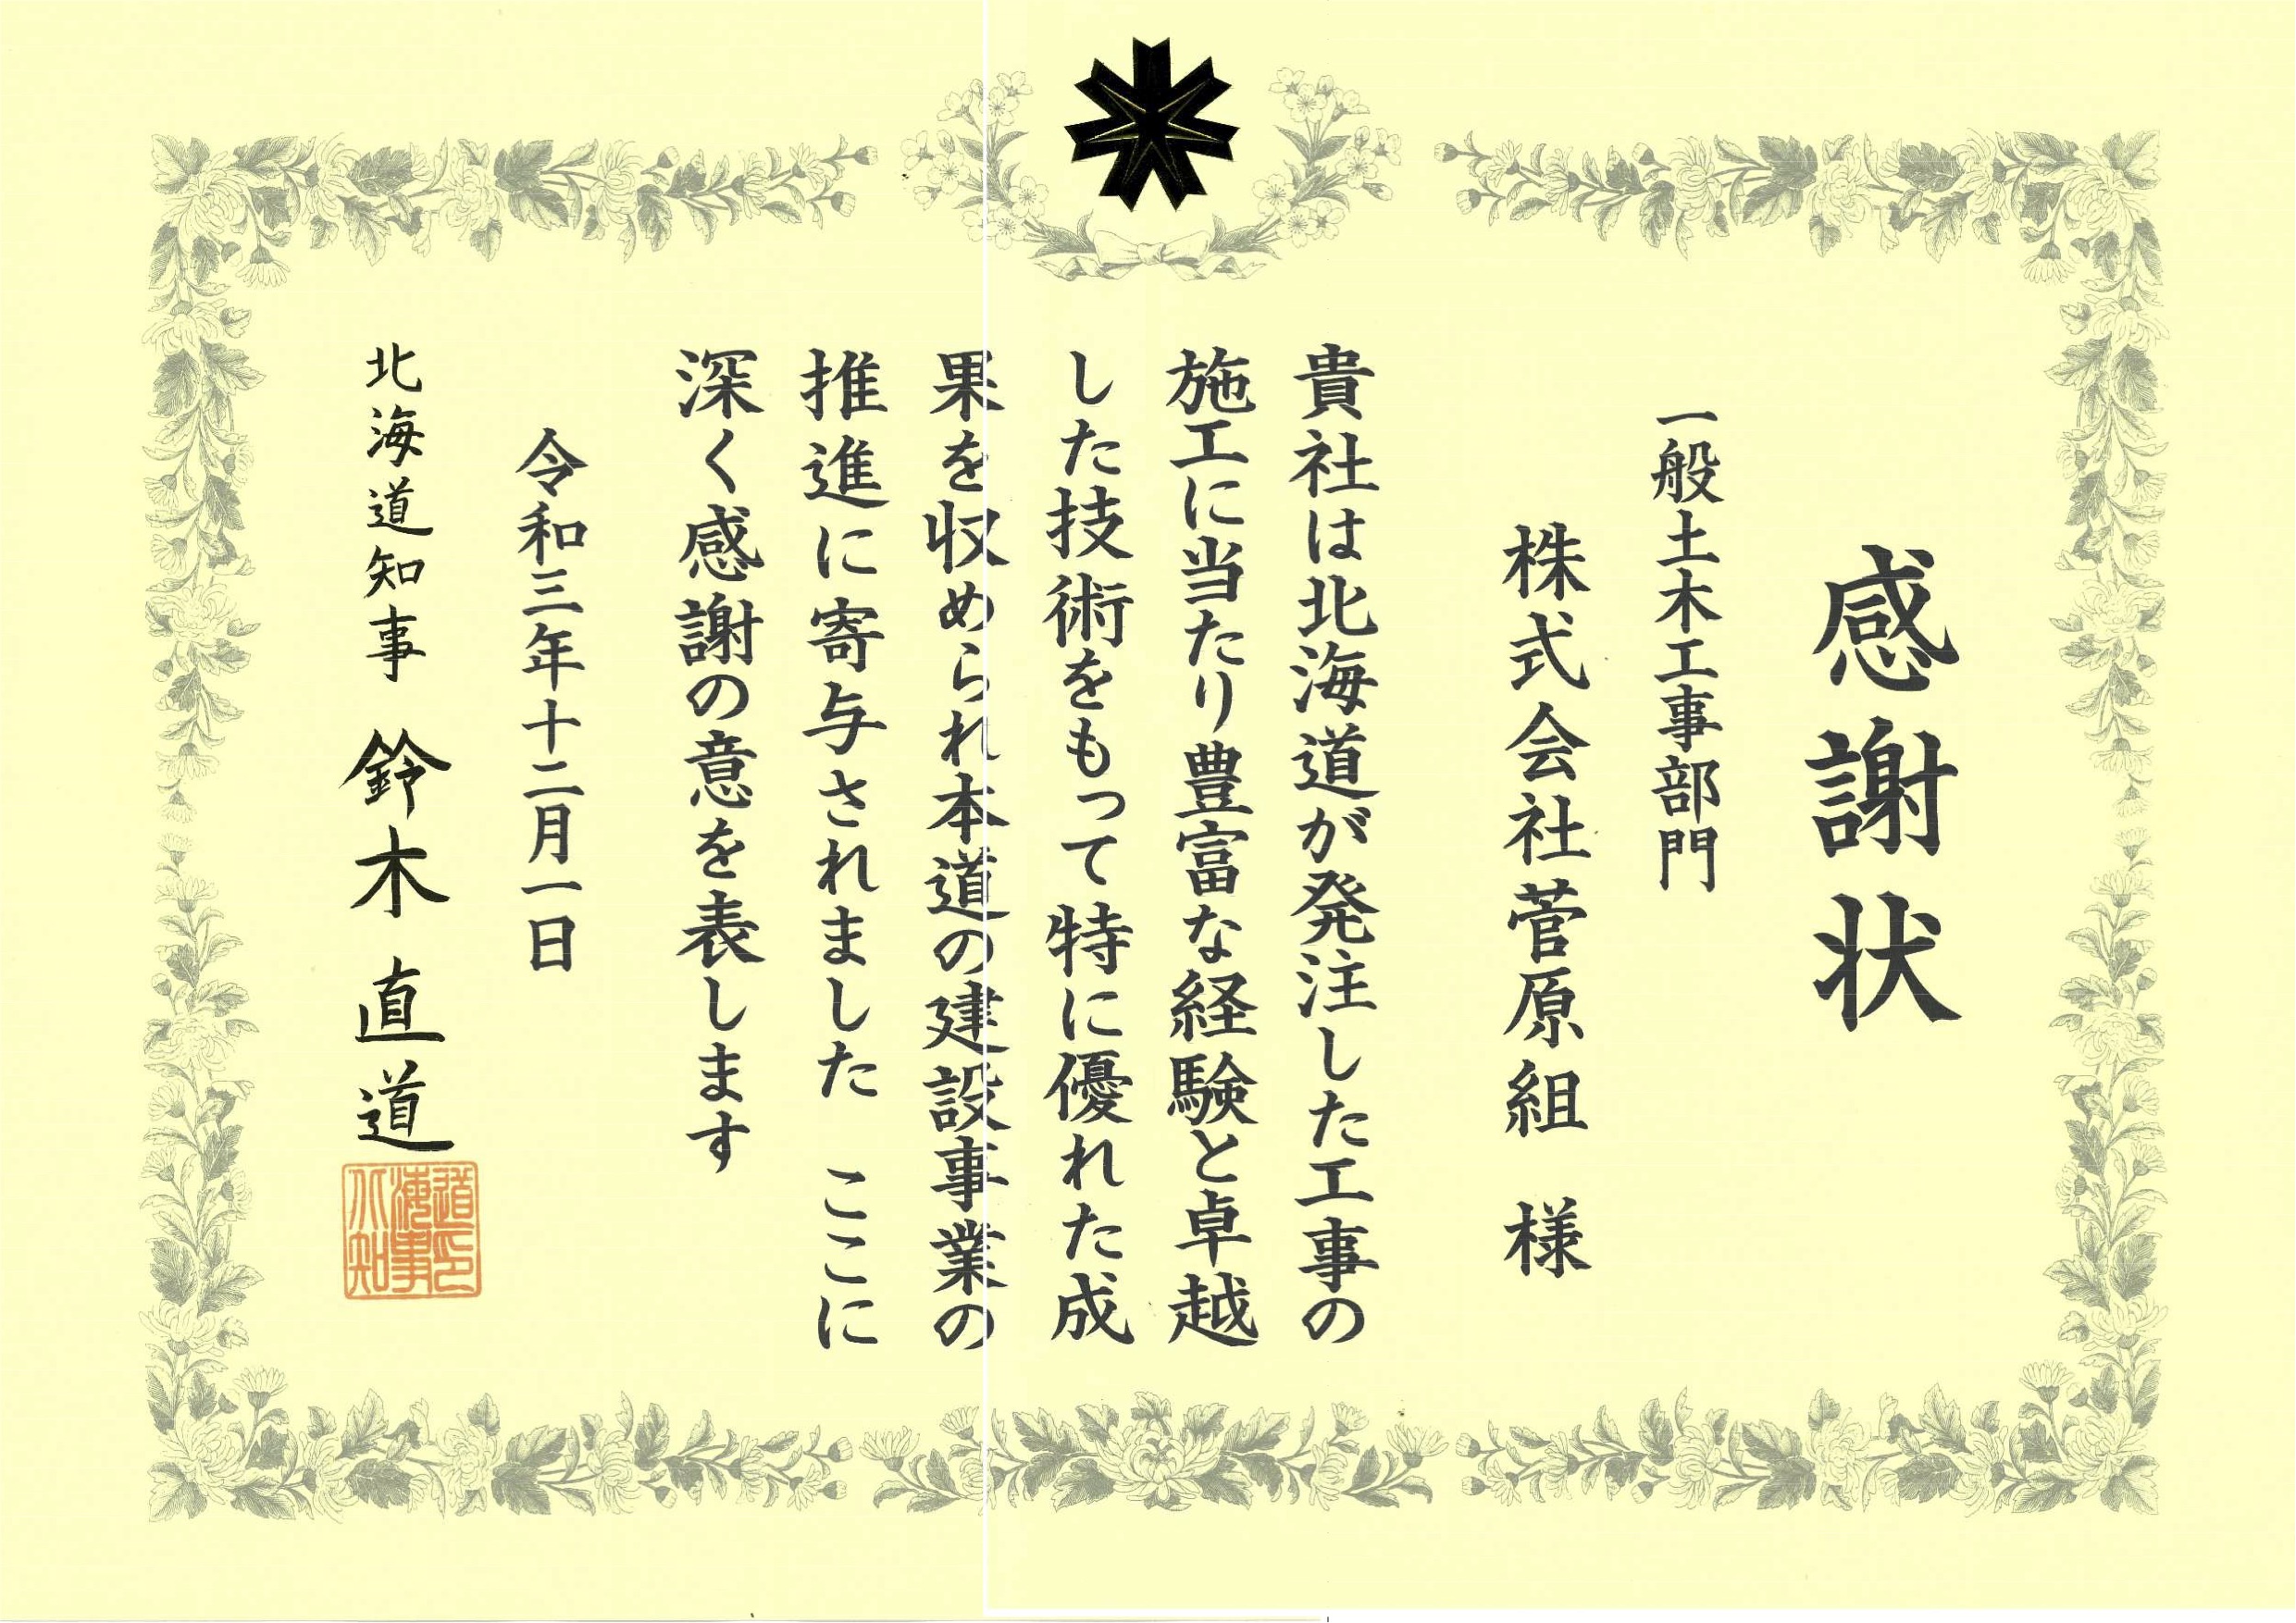 感謝状
一般土木工事部門
株式会社菅原組 様
貴社は北海道が発注した工事の
施工に当たり豊富な経験と卓越
した技術をもって特に優れた成
果を収められ本道の建設事業の
推進に寄与されました ここに
深く感謝の意を表します
令和三年十二月一日
北海道知事 鈴木直道
北海道知事印